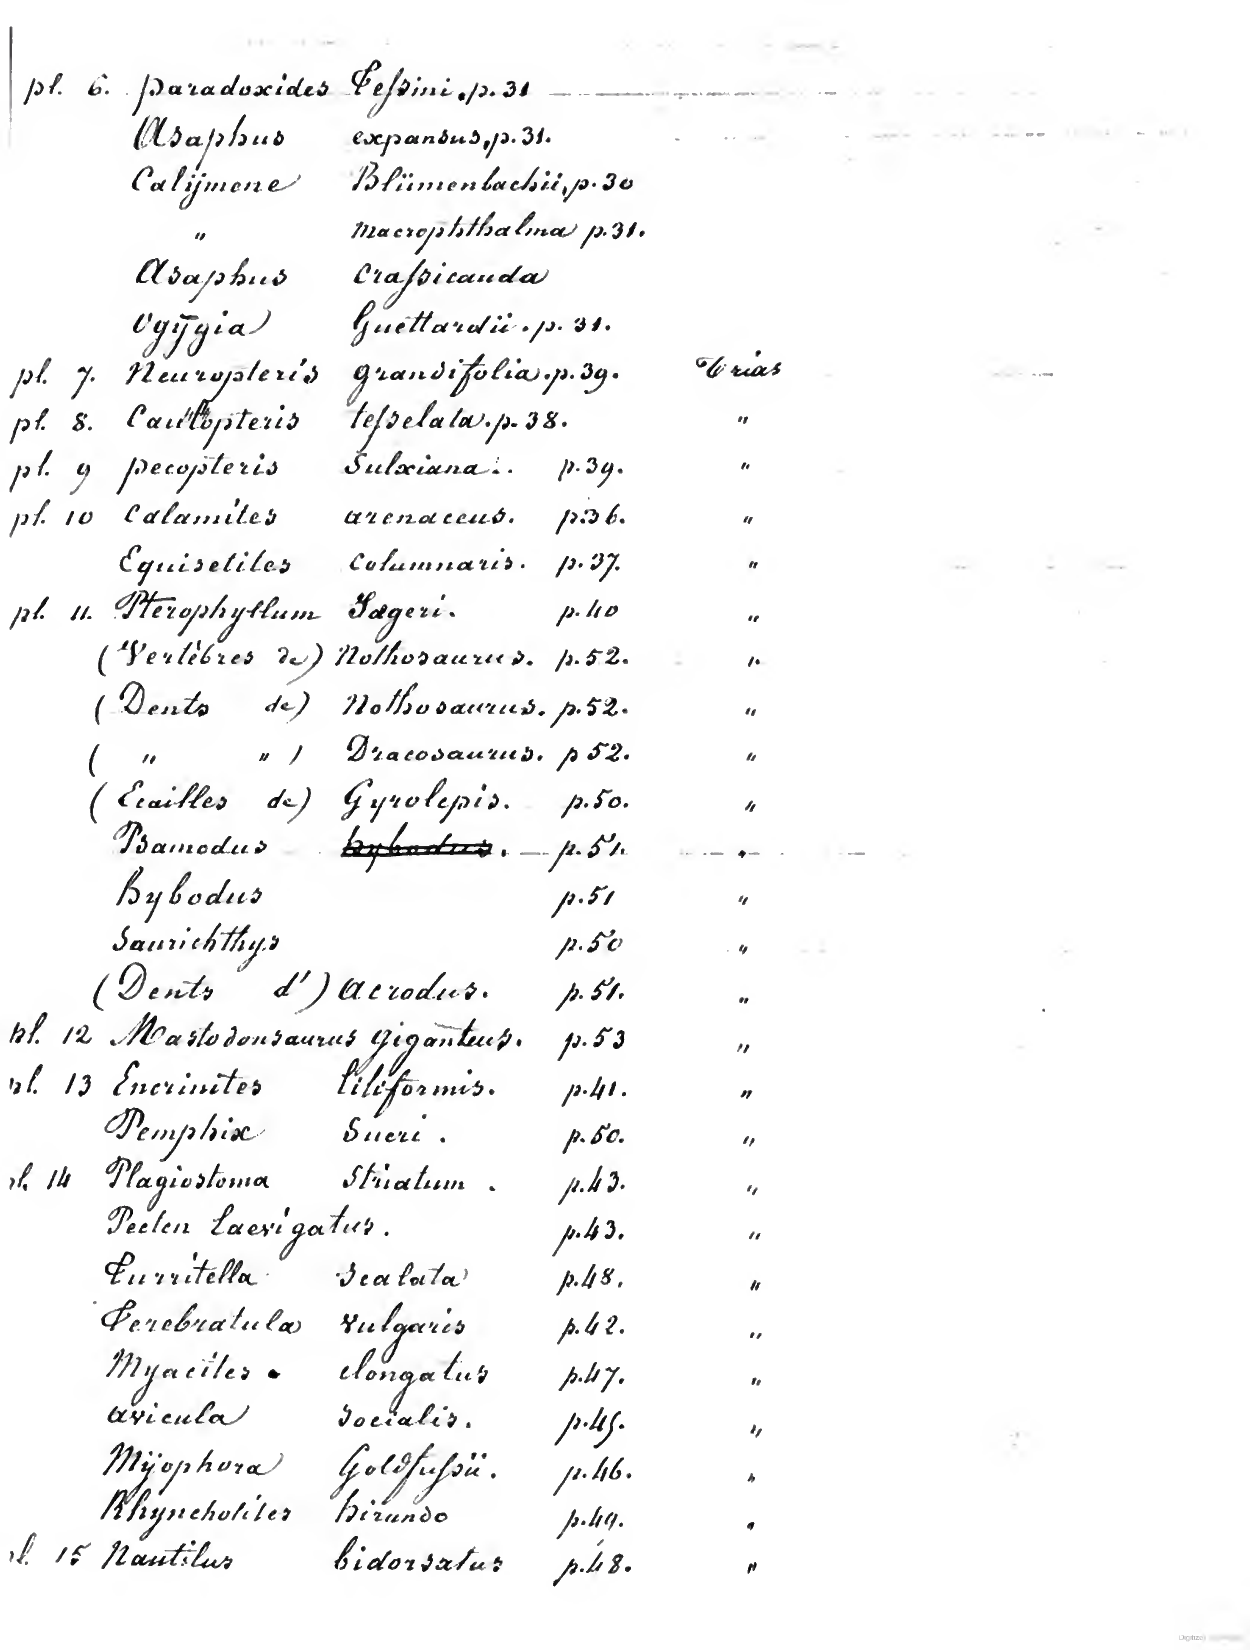 pl. 6. Paradoxides Tessini, p. 31
Asaphus expansus, p. 31.
Calÿmene Blümenbachii, p. 30
" Macrophthalma p. 31.
Asaphus Crassicauda
Ogÿgia Guettardii. p. 31.
pl. 7. Neuropteris grandifolia. p. 39. Trias
pl. 8. Caulopteris tesselata. p. 38. "
pl. 9 Pecopteris Sulxiana. p. 39. "
pl. 10 Calamites arenaceus. p. 36. "
Equisetites Columnaris. p. 37. "
pl. 11. Pterophyllum Jægeri. p. 40 "
(Vertèbres de) Nothosaurus. p. 52. "
(Dents de) Nothosaurus. p. 52. "
( " " ) Dracosaurus. p 52. "
(Ecailles de) Gyrolepis. p. 50. "
Psamodus hybodus. p. 51. "
Hybodus p. 51 "
Saurichthys p. 50 "
(Dents d') Acrodus. p. 51. "
pl. 12 Mastodonsaurus giganteus. p. 53 "
pl. 13 Encrinites liliformis. p. 41. "
Pemphix Sueri. p. 50. "
pl. 14 Plagiostoma Striatum. p. 43. "
Pecten Laevigatus. p. 43. "
Turritella Scalata p. 48. "
Terebratula Vulgaris p. 42. "
Myacites elongatus p. 47. "
Avicula Socialis. p. 45. "
Mÿophora Goldfussii. p. 46. "
Rhyncholites hirundo p. 49. "
pl. 15 Nautilus bidorsatus p. 48. "